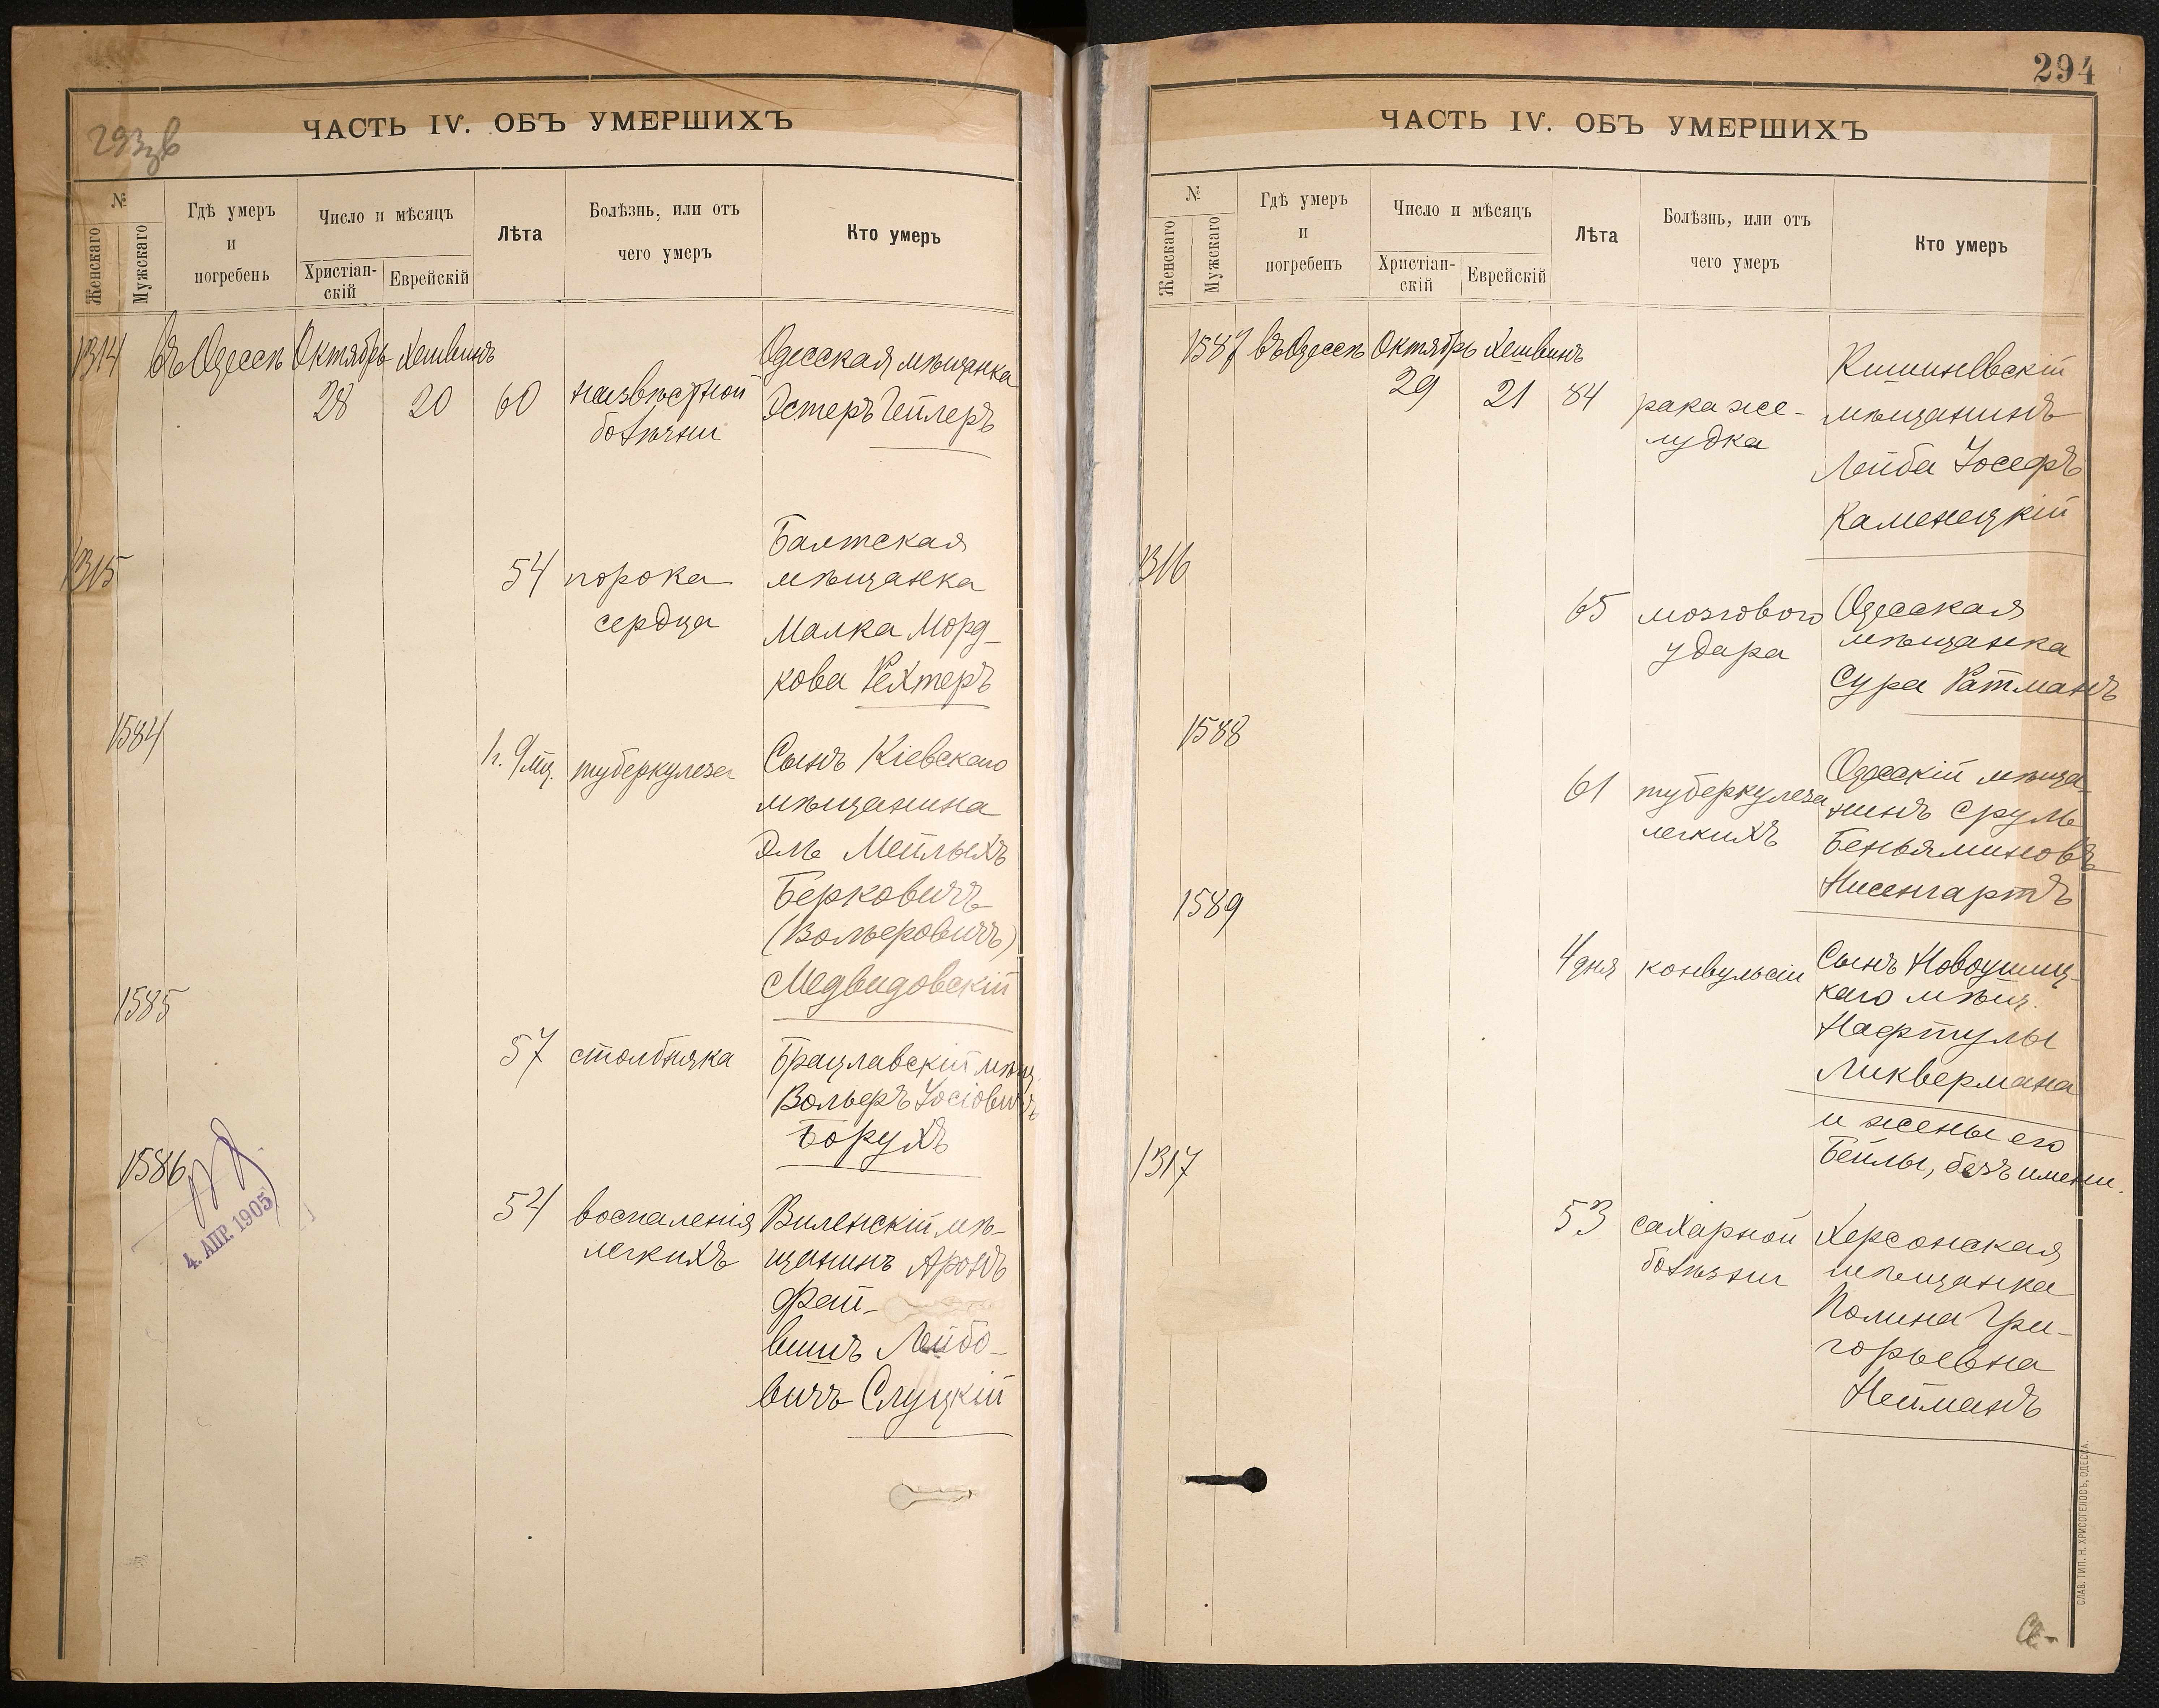 293зв
ЧАСТЬ IV. ОБЪ УМЕРШИХЪ
№
Женскаго
Мужскаго
Гдѣ умеръ
и
погребенъ
Число и мѣсяцъ
Христіан-
скій
Еврейскій
Лѣта
Болѣзнь, или отъ
чего умеръ
Кто умеръ
1314
въ Одессѣ
Октябрь
Хешвинъ
28
20
60
болѣзни
Одесская мѣщанка
Эстеръ Гейлеръ
1315
54
порока
сердца
Балтская
мѣщанка
Малка Морд-
кова Рехтеръ
1584
1 г. 9 мц.
туберкулеза
Сынъ Кіевскаго
мѣщанина
Эль Мейлыхъ
Берковичъ
(Вольфовичъ)
Медвидовскій
1585
57
столбняка
Брацлавскій мѣщ.
Вольфъ Іосіовичъ
Борухъ
1586
54
воспаленія
легкихъ
Виленскій мѣ-
щанинъ Аронъ
Фай-
вишъ Лейбо-
вичъ Слуцкій
4. АПР. 1905
294
ЧАСТЬ IV. ОБЪ УМЕРШИХЪ
№
Женскаго
Мужскаго
Гдѣ умеръ
и
погребенъ
Число и мѣсяцъ
Христіан-
скій
Еврейскій
Лѣта
Болѣзнь, или отъ
чего умеръ
Кто умеръ
1587
въ Одессѣ
Октябрь
Хешвинъ
29
21
84
рака же-
лудка
Кишиневскій
мѣщанинъ
Лейба Іосефъ
Каменецкій
1316
65
мозгового
удара
Одесская
мѣщанка
Сура Ратманъ
1588
61
туберкулеза
легкихъ
Одесскій мѣща-
нинъ Сруль
Беньяминовъ
Нисенгартъ
1589
4 дня
конвульсіи
Сынъ Новоушиц-
каго мѣщ.
Нафтулы
Ликвермана
и жены его
Бейлы, безъ имени.
1317
53
сахарной
болѣзни
Херсонская
мѣщанка
Полина Гри-
горьевна
Нейманъ
СЛАВ. ТИП. Н. ХРИСОГЕЛОСЪ, ОДЕССА.